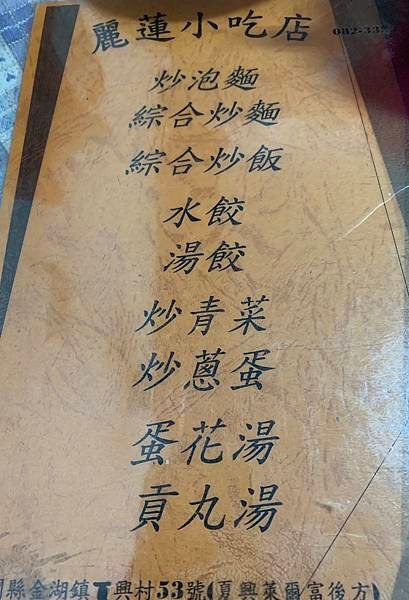 麗蓮小吃店 082-33
炒泡麵
綜合炒麵
綜合炒飯
水餃
湯餃
炒青菜
炒蔥蛋
蛋花湯
貢丸湯
縣金湖鎮下興村53號(夏興萊爾富後方)